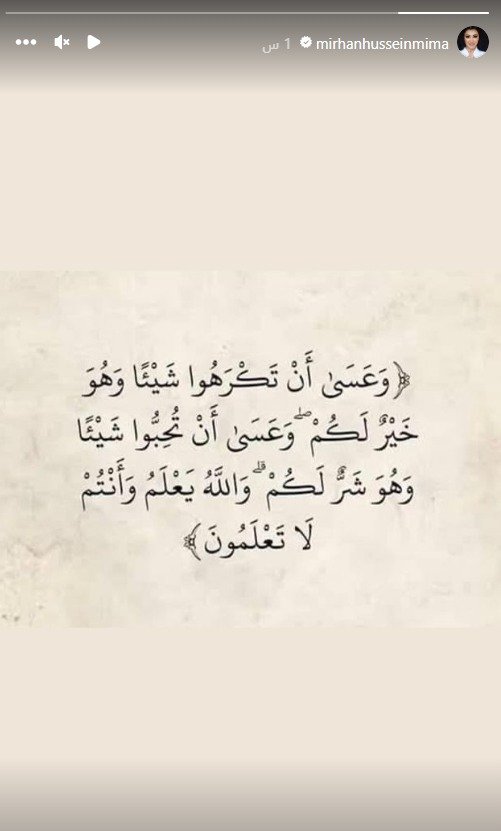 mirhanhusseinmima 1 س
﴿وَعَسَىٰ أَنْ تَكْرَهُوا شَيْئًا وَهُوَ
خَيْرٌ لَكُمْ ۖ وَعَسَىٰ أَنْ تُحِبُّوا شَيْئًا
وَهُوَ شَرٌّ لَكُمْ ۗ وَاللَّهُ يَعْلَمُ وَأَنْتُمْ
لَا تَعْلَمُونَ﴾